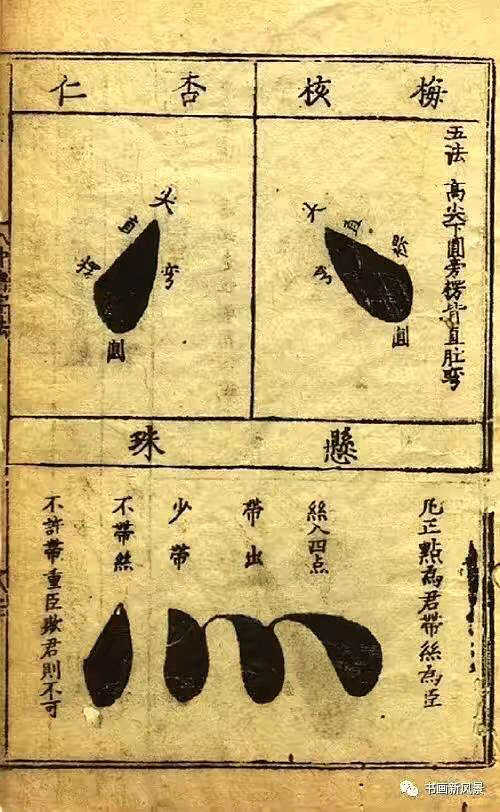 梅核
五法 高尖下圓旁楞背直肚彎
尖
直
楞
圓
杏仁
尖
直
楞
彎
圓
懸珠
凡正點為君帶絲為臣
絲入四点
帶出
少帶
不帶絲
不許帶重臣欺君則不可
书画新风景